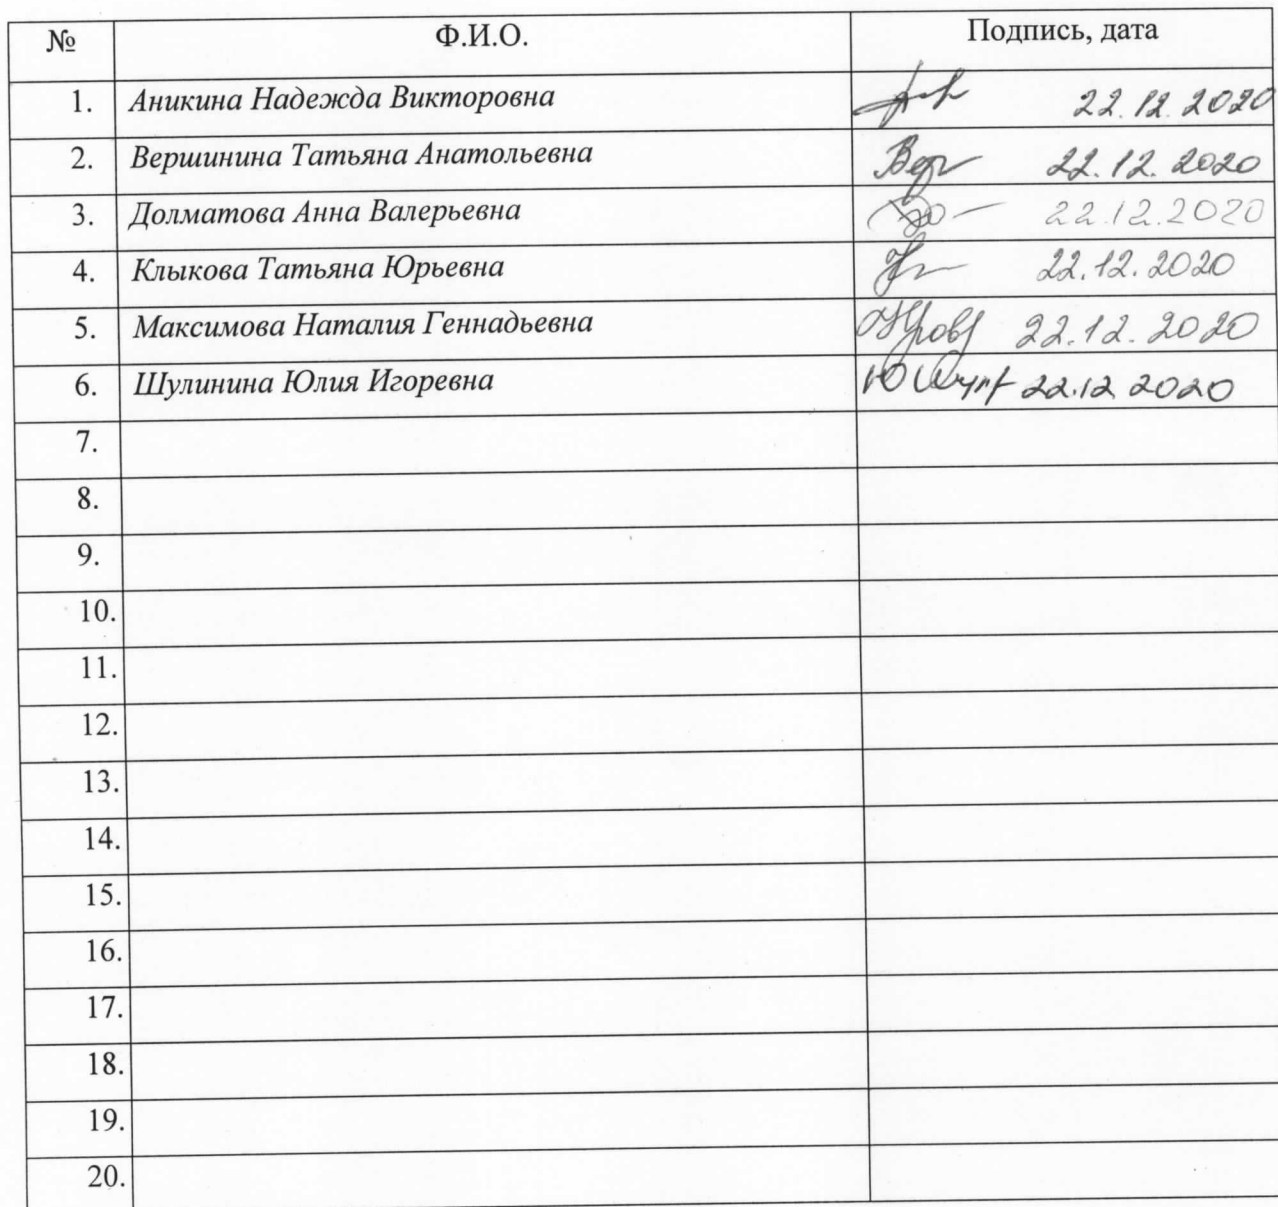 № Ф.И.О. Подпись, дата
1. Аникина Надежда Викторовна 22.12.2020
2. Вершинина Татьяна Анатольевна Вер 22.12.2020
3. Долматова Анна Валерьевна 22.12.2020
4. Клыкова Татьяна Юрьевна 22.12.2020
5. Максимова Наталия Геннадьевна 22.12.2020
6. Шулинина Юлия Игоревна 22.12.2020
7.
8.
9.
10.
11.
12.
13.
14.
15.
16.
17.
18.
19.
20.